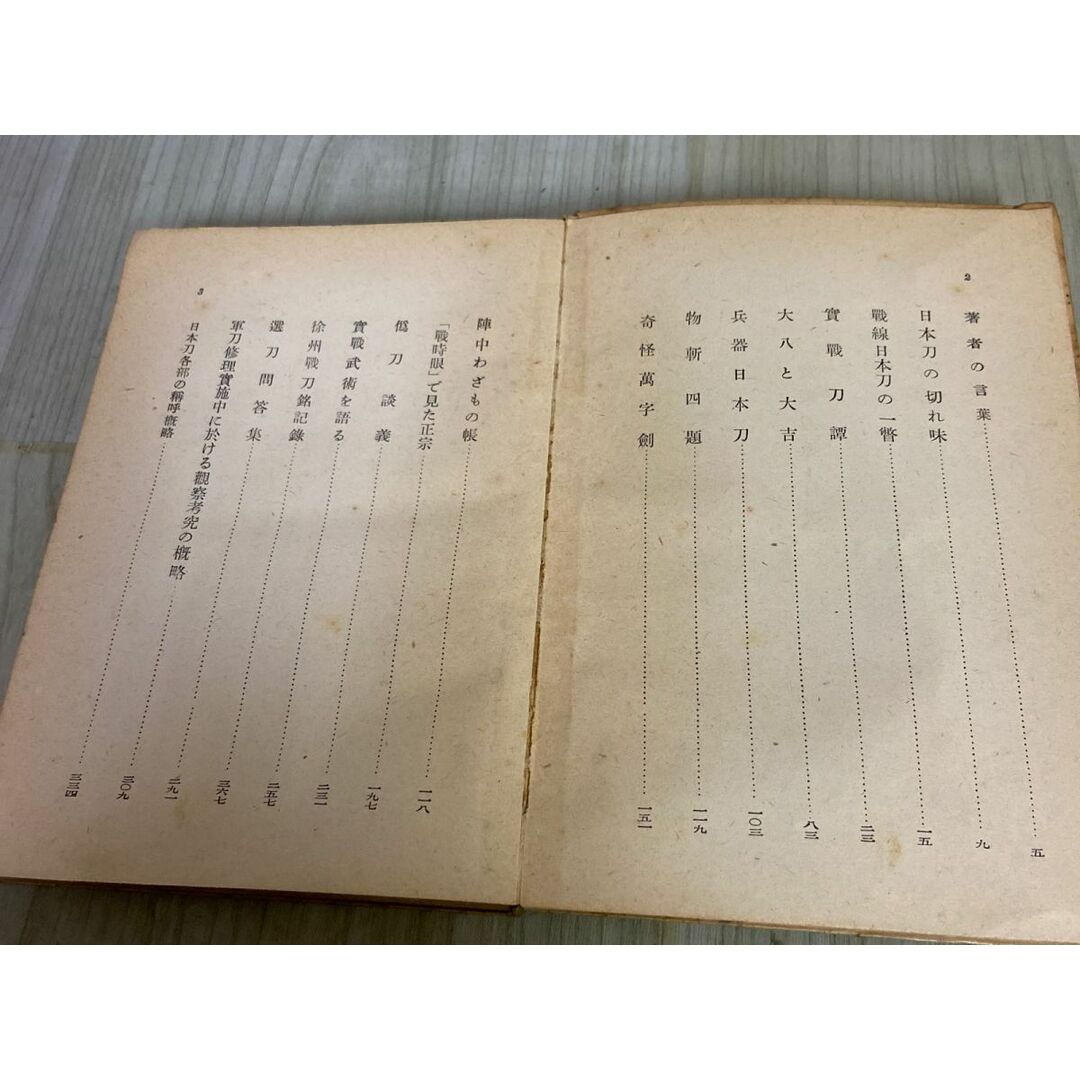 2
著者の言葉……五
日本刀の切れ味……九
戰線日本刀の一瞥……一五
實戰刀譚……二三
大八と大吉……八三
兵器日本刀……一〇三
物斬四題……一一九
奇怪萬字劍……一五一
陣中わざもの帳……一一八
「戰時眼」で見た正宗……一九七
僞刀談義……二三一
實戰武術を語る……二五七
徐州戰刀銘記錄……二六七
選刀問答集……二九一
軍刀修理實施中に於ける觀察考究の概略……三〇九
日本刀各部の稱呼概略……三三四
3